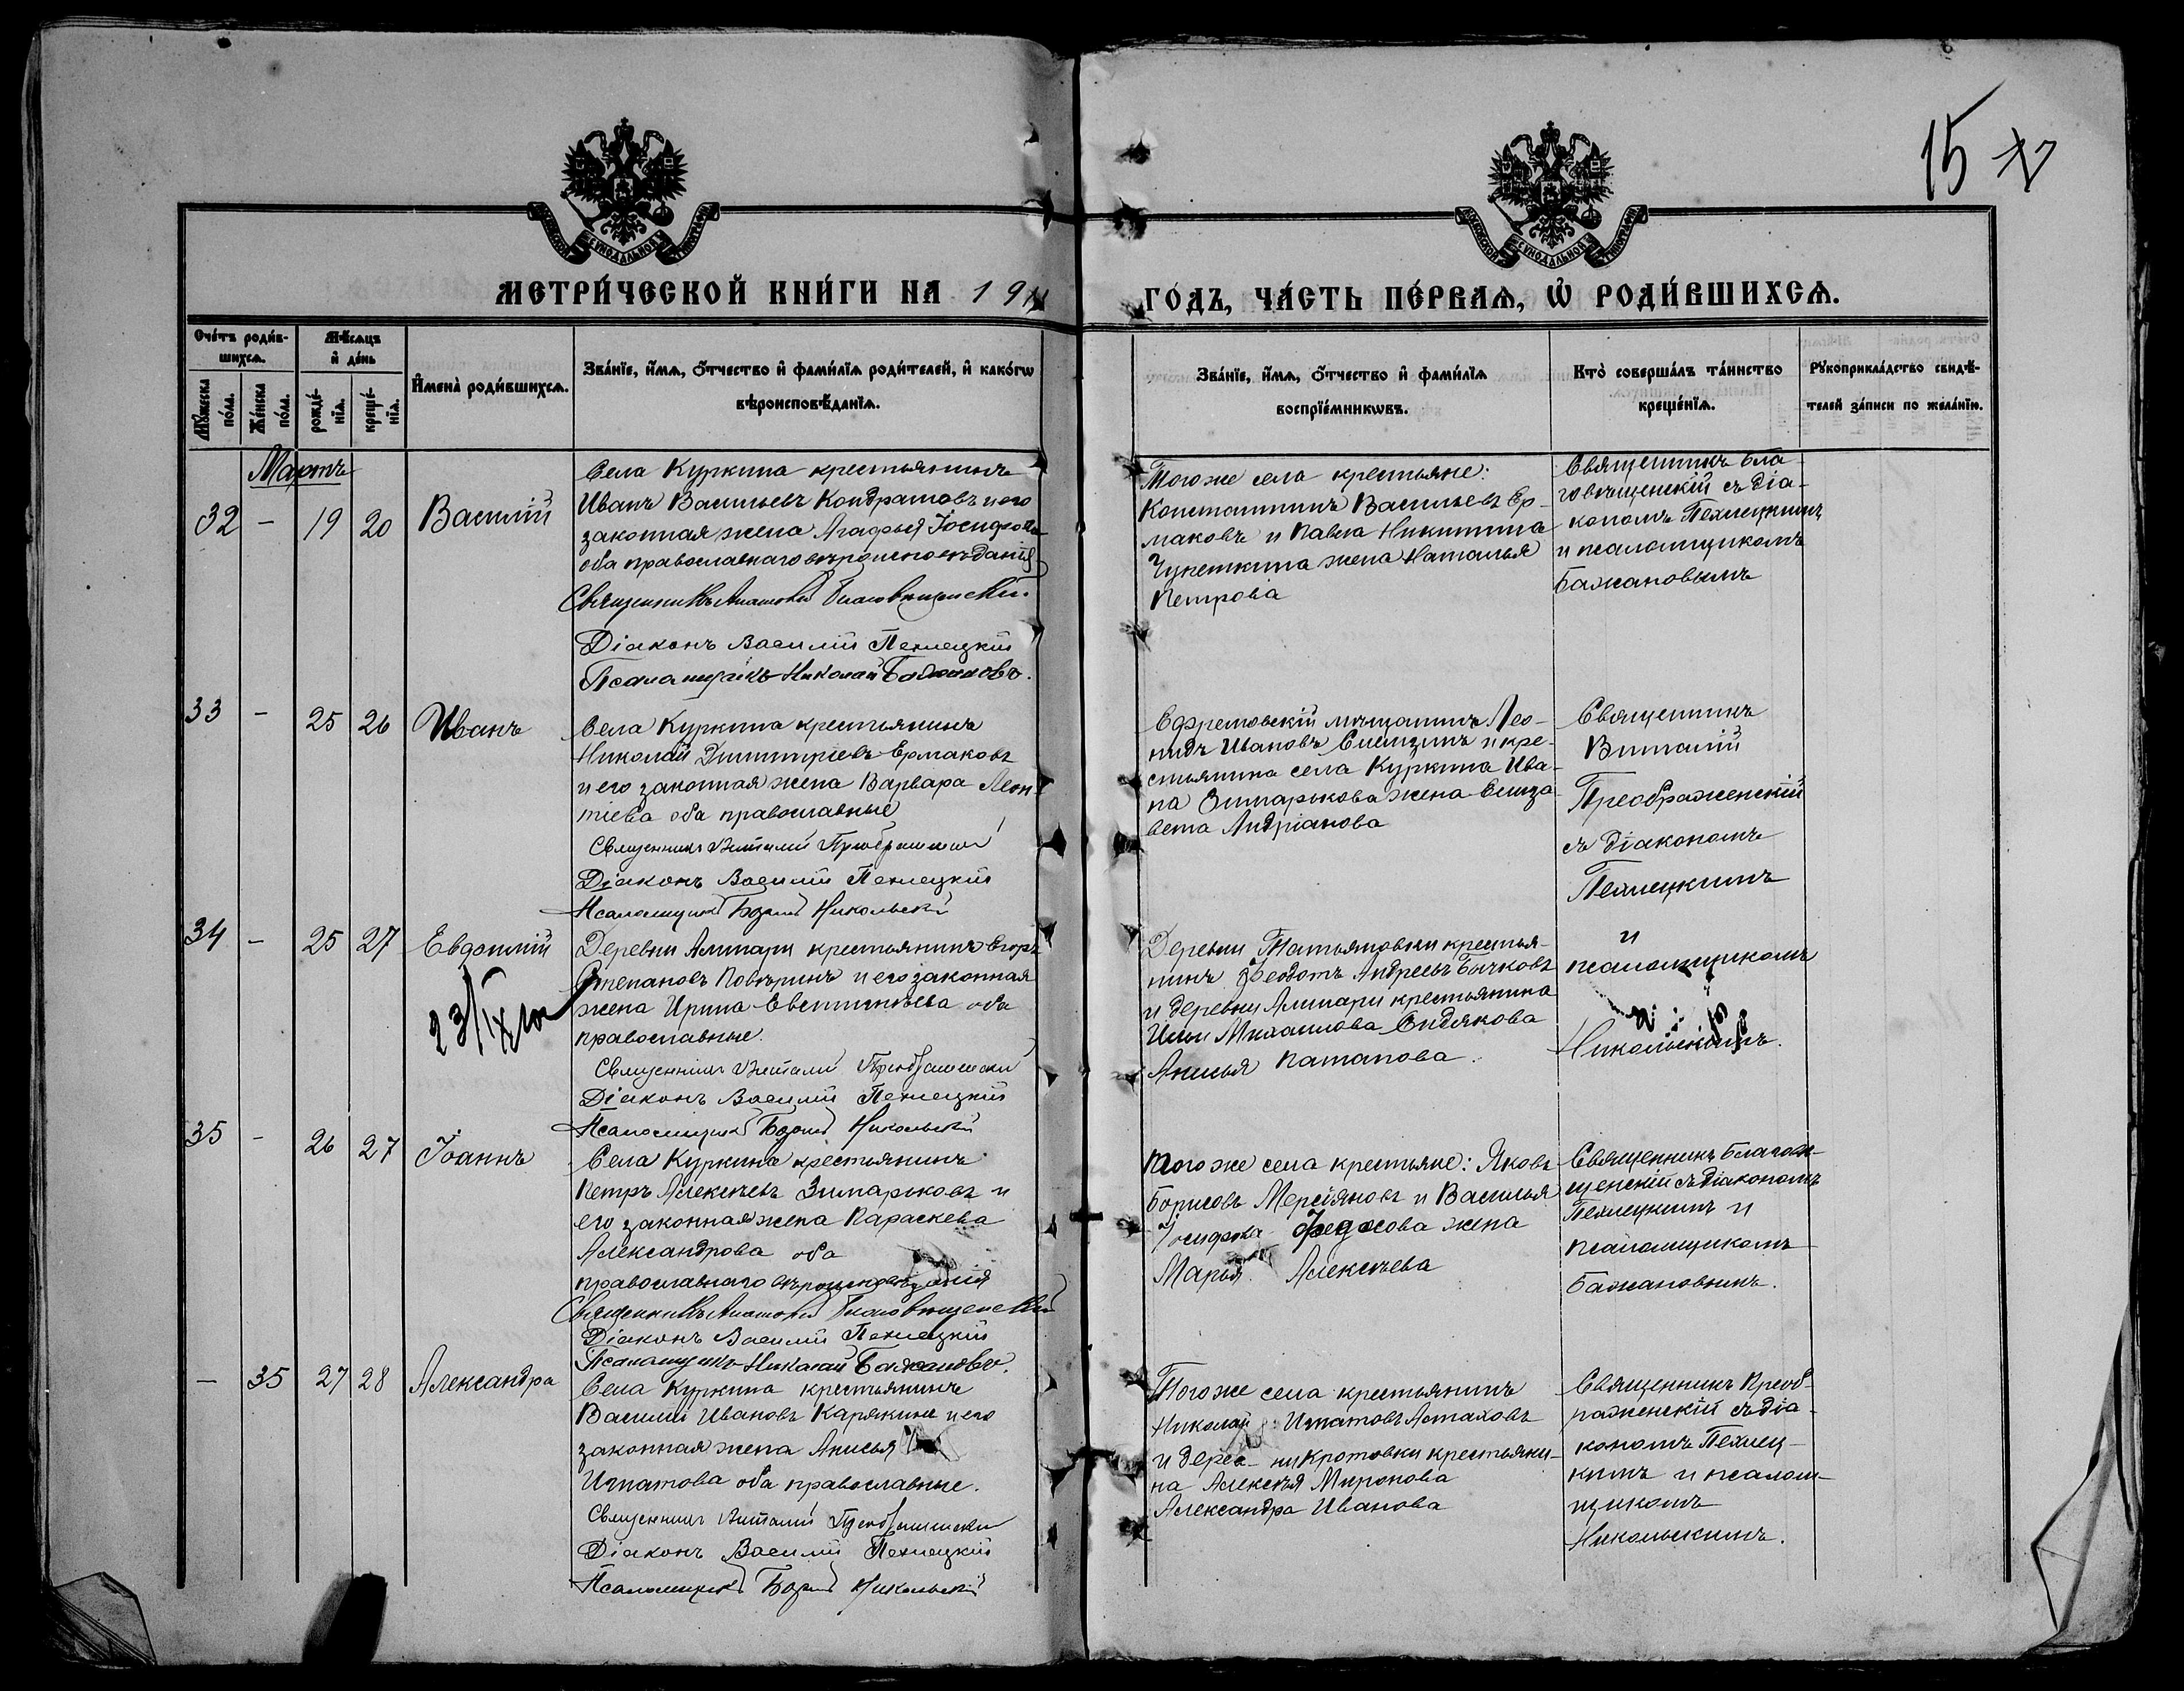 15
МОСКОВСКОЙ СУНОДАЛЬНОЙ ТИПОГРАФІИ
МОСКОВСКОЙ СУНОДАЛЬНОЙ ТИПОГРАФІИ
МЕТРИ́ЧЕСКОЙ КНИ́ГИ НА 1911
ГО́ДЪ, ЧА́СТЬ ПЕ́РВАѦ, Ѽ РОДИ́ВШИХСѦ.
Сче́тъ роди́в-
шихсѧ.
Мꙋ́жеска
по́ла.
Же́нска
по́ла.
Мѣ́сѧцъ
и҆ де́нь
рожде́-
нїѧ.
креще́-
нїѧ.
И҆мена̀ роди́вшихсѧ.
Зва́нїе, и҆́мѧ, ѻ҆́тчество и҆ фами́лїѧ роди́телей, и҆ како́гѡ
вѣроисповѣ́данїѧ.
Зва́нїе, и҆́мѧ, ѻ҆́тчество и҆ фами́лїѧ
воспрїе́мникѡвъ.
Кто̀ соверша́лъ та́инство
креще́нїѧ.
Рꙋкоприкла́дство свидѣ́-
телей за́писи по жела́нїю.
Мартъ
32 - 19 20 Василій
Села Куркина крестьянинъ
Иванъ Васильевъ Кондратовъ и его
законная жена Агафья Іосифова
оба православнаго вѣроисповѣданія
Священникъ Анатолій Благовѣщенскій.
Діаконъ Василій Пехлецкій
Псаломщикъ Николай Бажановъ.
Того же села крестьяне:
Константинъ Васильевъ Ер-
маковъ и Павла Никитина
Чунеткина жена Наталья
Петрова
Священникъ Бла-
говѣщенскій съ діа-
кономъ Пехлецкимъ
и псаломщикомъ
Бажановымъ
33 - 25 26 Иванъ
Села Куркина крестьянинъ
Николай Димитріевъ Ермаковъ
и его законная жена Варвара Леон-
тіева оба православные
Священникъ Виталій Преображенскій
Діаконъ Василій Пехлецкій
Псаломщикъ Борисъ Никольскій
Ефремовскій мѣщанинъ Лео-
нидъ Ивановъ и кре-
стьянина села Куркина Ива-
на Зимарькова жена Елиза-
вета Андріанова
Священникъ
Виталій
Преображенскій
съ діакономъ
Пехлецкимъ
34 - 25 27 Евдокимій
23/IX
Деревни Алитари крестьянинъ Егоръ
Степановъ Повѣринъ и его законная
жена Ирина Евстигнѣева оба
православные.
Священникъ Виталій Преображенскій
Діаконъ Василій Пехлецкій
Псаломщикъ Борисъ Никольскій
Деревни Татьяновки крестья-
нинъ Феодотъ Андреевъ Бычковъ
и деревни Алитари крестьянина
Ильи Михаилова Сидякова
Анисья Патапова.
и
псаломщикомъ
Никольскимъ.
35 - 26 27 Іоаннъ
Села Куркина крестьянинъ
Петръ Алексѣевъ Зимарьковъ и
его законная жена Параскева
Александрова оба
православнаго вѣроисповѣданія
Священникъ Анатолій Благовѣщенскій
Діаконъ Василій Пехлецкій
Псаломщикъ Николай Бажановъ.
Того же села крестьяне: Яковъ
Борисовъ Мерсіяновъ и Василья
Іосифова Федосова жена
Марья Алексѣева
Священникъ Благовѣ-
щенскій съ діакономъ
Пехлецкимъ и
псаломщикомъ
Бажановымъ.
- 35 27 28 Александра
Села Куркина крестьянинъ
Василій Ивановъ Карякинъ и его
законная жена Анисья
Игнатова оба православные.
Священникъ Виталій Преображенскій
Діаконъ Василій Пехлецкій
Псаломщикъ Борисъ Никольскій
Того же села крестьянинъ
Николай Игнатовъ Астаховъ
и дерев-ни Кротовки крестьяни-
на Алексѣя Миронова
Александра Иванова
Священникъ Преоб-
раженскій съ діа-
кономъ Пехлец-
кимъ и псалом-
щикомъ
Никольскимъ.